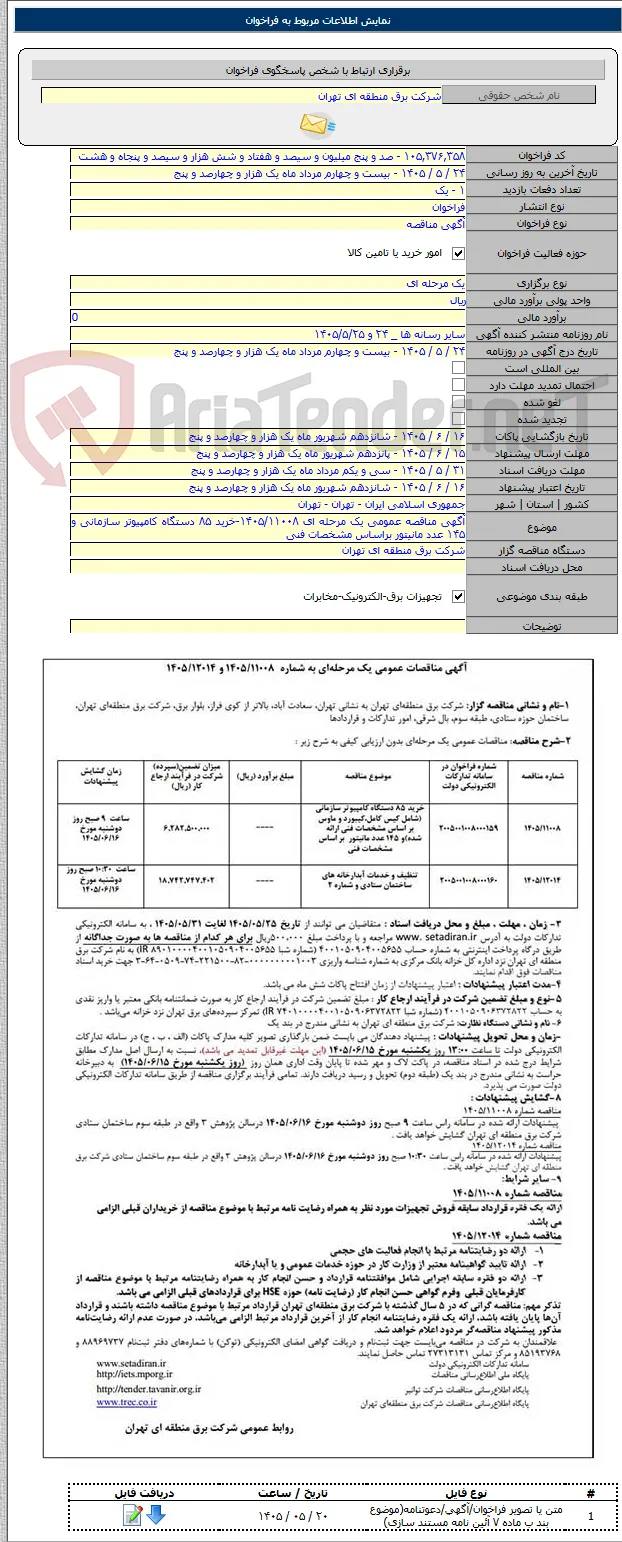 نمایش اطلاعات مربوط به فراخوان
برقراری ارتباط با شخص پاسخگوی فراخوان
نام شخص حقوقی شرکت برق منطقه ای تهران
کد فراخوان ۱۰۵,۳۷۶,۳۵۸ - صد و پنج میلیون و سیصد و هفتاد و شش هزار و سیصد و پنجاه و هشت
تاریخ آخرین به روز رسانی ۲۴ / ۵ / ۱۴۰۵ - بیست و چهارم مرداد ماه یک هزار و چهارصد و پنج
تعداد دفعات بازدید ۱ - یک
نوع انتشار فراخوان
نوع فراخوان آگهی مناقصه
حوزه فعالیت فراخوان امور خرید یا تامین کالا
نوع برگزاری یک مرحله ای
واحد پولی برآورد مالی ریال
برآورد مالی 0
نام روزنامه منتشر کننده آگهی سایر رسانه ها _ ۲۴ و ۱۴۰۵/۵/۲۵
تاریخ درج آگهی در روزنامه ۲۴ / ۵ / ۱۴۰۵ - بیست و چهارم مرداد ماه یک هزار و چهارصد و پنج
بین المللی است
احتمال تمدید مهلت دارد
لغو شده
تجدید شده
تاریخ بازگشایی پاکات ۱۶ / ۶ / ۱۴۰۵ - شانزدهم شهریور ماه یک هزار و چهارصد و پنج
مهلت ارسال پیشنهاد ۱۵ / ۶ / ۱۴۰۵ - پانزدهم شهریور ماه یک هزار و چهارصد و پنج
مهلت دریافت اسناد ۳۱ / ۵ / ۱۴۰۵ - سی و یکم مرداد ماه یک هزار و چهارصد و پنج
تاریخ اعتبار پیشنهاد ۱۶ / ۶ / ۱۴۰۵ - شانزدهم شهریور ماه یک هزار و چهارصد و پنج
کشور | استان | شهر جمهوری اسلامی ایران - تهران - تهران
موضوع آگهی مناقصه عمومی یک مرحله ای ۱۴۰۵/۱۱۰۰۸-خرید ۸۵ دستگاه کامپیوتر سازمانی و
۱۴۵ عدد مانیتور براساس مشخصات فنی
دستگاه مناقصه گزار شرکت برق منطقه ای تهران
محل دریافت اسناد
طبقه بندی موضوعی تجهیزات برق-الکترونیک-مخابرات
توضیحات
AriaTender.neT
آگهی مناقصات عمومی یک مرحله‌ای به شماره ۱۴۰۵/۱۱۰۰۸ و ۱۴۰۵/۱۲۰۱۴
۱-نام و نشانی مناقصه گزار: شرکت برق منطقه‌ای تهران به نشانی تهران، سعادت آباد، بالاتر از کوی فراز، بلوار برق، شرکت برق منطقه‌ای تهران،
ساختمان حوزه ستادی، طبقه سوم، بال شرقی، امور تدارکات و قراردادها
۲-شرح مناقصه: مناقصات عمومی یک مرحله‌ای بدون ارزیابی کیفی به شرح زیر :
شماره مناقصه
شماره فراخوان در سامانه تدارکات الکترونیکی دولت
موضوع مناقصه
مبلغ برآورد (ریال)
میزان تضمین(سپرده) شرکت در فرآیند ارجاع کار (ریال)
زمان گشایش پیشنهادات
۱۴۰۵/۱۱۰۰۸
۲۰۰۵۰۰۱۰۸۰۰۰۱۵۹
خرید ۸۵ دستگاه کامپیوتر سازمانی (شامل کیس کامل،کیبورد و ماوس بر اساس مشخصات فنی ارائه شده)و ۱۴۵ عدد مانیتور بر اساس مشخصات فنی
----
۶,۲۸۲,۵۰۰,۰۰۰
ساعت ۹ صبح روز دوشنبه مورخ ۱۴۰۵/۰۶/۱۶
۱۴۰۵/۱۲۰۱۴
۲۰۰۵۰۰۱۰۸۰۰۰۱۶۰
تنظیف و خدمات آبدارخانه های ساختمان ستادی و شماره ۲
----
۱۸,۷۴۲,۷۴۷,۴۰۲
ساعت ۱۰:۳۰ صبح روز دوشنبه مورخ ۱۴۰۵/۰۶/۱۶
۳- زمان ، مهلت ، مبلغ و محل دریافت اسناد : متقاضیان می توانند از تاریخ ۱۴۰۵/۰۵/۲۵ لغایت ۱۴۰۵/۰۵/۳۱ ، به سامانه الکترونیکی
تدارکات دولت به آدرس www. setadiran.ir مراجعه و با پرداخت مبلغ ۵۰۰،۰۰۰ریال برای هر کدام از مناقصه ها به صورت جداگانه از
طریق درگاه پرداخت اینترنتی به شماره حساب ۴۰۰۱۰۵۰۹۰۴۰۰۵۶۵۵ (شماره شبا IR ۸۹۰۱۰۰۰۰۴۰۰۱۰۵۰۹۰۴۰۰۵۶۵۵) به نام شرکت برق
منطقه ای تهران نزد اداره کل خزانه بانک مرکزی به شماره شناسه واریزی ۳-۶۴-۰۵۰۹-۷۴-۲۲۱۵۰۰-۸۲-۰۰۰۰۰۰۰۰۰۱۰۰۳ جهت خرید اسناد
مناقصات فوق اقدام نمایند.
۴-مدت اعتبار پیشنهادات : اعتبار پیشنهادات از زمان افتتاح پاکات شش ماه می باشد.
۵-نوع و مبلغ تضمین شرکت در فرآیند ارجاع کار : مبلغ تضمین شرکت در فرآیند ارجاع کار به صورت ضمانتنامه بانکی معتبر یا واریز نقدی
به حساب ۴۰۰۱۰۵۰۹۰۶۳۷۲۸۲۲ (شماره شبا IR ۷۴۰۱۰۰۰۰۴۰۰۱۰۵۰۹۰۶۳۷۲۸۲۲) تمرکز سپرده‌های برق تهران نزد خزانه می‌باشد.
۶-نام و نشانی دستگاه نظارت: شرکت برق منطقه ای تهران به نشانی مندرج در بند یک
۷-زمان و محل تحویل پیشنهادات : پیشنهاد دهندگان می بایست ضمن بارگذاری تصویر کلیه مدارک پاکات (الف ، ب ، ج) در سامانه تدارکات
الکترونیکی دولت تا ساعت ۱۳:۰۰ روز یکشنبه مورخ ۱۴۰۵/۰۶/۱۵ (این مهلت غیرقابل تمدید می باشد)، نسبت به ارسال اصل مدارک مطابق
شرایط درج شده در اسناد مناقصه، در پاکت لاک و مهر شده تا پایان وقت اداری همان روز (روز یکشنبه مورخ ۱۴۰۵/۰۶/۱۵) به دبیرخانه
حراست به نشانی مندرج در بند یک (طبقه دوم) تحویل و رسید دریافت دارند. تمامی فرآیند برگزاری مناقصه از طریق سامانه تدارکات الکترونیکی
دولت صورت می پذیرد.
۸-گشایش پیشنهادات :
مناقصه شماره ۱۴۰۵/۱۱۰۰۸
پیشنهادات ارائه شده در سامانه راس ساعت ۹ صبح روز دوشنبه مورخ ۱۴۰۵/۰۶/۱۶ درسالن پژوهش ۳ واقع در طبقه سوم ساختمان ستادی
شرکت برق منطقه ای تهران گشایش خواهد یافت .
مناقصه شماره ۱۴۰۵/۱۲۰۱۴
پیشنهادات ارائه شده در سامانه راس ساعت ۱۰:۳۰ صبح روز دوشنبه مورخ ۱۴۰۵/۰۶/۱۶ درسالن پژوهش ۳ واقع در طبقه سوم ساختمان ستادی شرکت برق
منطقه ای تهران گشایش خواهد یافت .
۹- سایر شرایط:
مناقصه شماره ۱۴۰۵/۱۱۰۰۸
ارائه یک فقره قرارداد سابقه فروش تجهیزات مورد نظر به همراه رضایت نامه مرتبط با موضوع مناقصه از خریداران قبلی الزامی
می باشد.
مناقصه شماره ۱۴۰۵/۱۲۰۱۴
۱- ارائه دو رضایتنامه مرتبط با انجام فعالیت های حجمی
۲- ارائه تایید گواهینامه معتبر از وزارت کار در حوزه خدمات عمومی و یا آبدارخانه
۳- ارائه دو فقره سابقه اجرایی شامل موافقتنامه قرارداد و حسن انجام کار به همراه رضایتنامه مرتبط با موضوع مناقصه از
کارفرمایان قبلی وفرم گواهی حسن انجام کار (رضایت نامه) حوزه HSE برای قراردادهای قبلی الزامی می باشد.
تذکر مهم: مناقصه گرانی که در ۵ سال گذشته با شرکت برق منطقه‌ای تهران قرارداد مرتبط با موضوع مناقصه داشته باشند و قرارداد
آن‌ها پایان یافته باشد، ارائه یک فقره رضایتنامه انجام کار از آخرین قرارداد مرتبط الزامی می‌باشد، در صورت عدم ارائه رضایت‌نامه
مذکور پیشنهاد مناقصه‌گر مردود اعلام خواهد شد.
علاقمندان به شرکت در مناقصه می‌بایست جهت ثبت‌نام و دریافت گواهی امضای الکترونیکی (توکن) با شماره‌های دفتر ثبت‌نام ۸۸۹۶۹۷۳۷ و
۸۵۱۹۳۷۶۸ و مرکز تماس ۲۷۳۱۳۱۳۱ تماس حاصل نمایند.
سامانه تدارکات الکترونیکی دولت www.setadiran.ir
پایگاه ملی اطلاع‌رسانی مناقصات http://iets.mporg.ir
پایگاه اطلاع‌رسانی مناقصات شرکت توانیر http://tender.tavanir.org.ir
پایگاه اطلاع‌رسانی مناقصات شرکت برق منطقه‌ای تهران www.trec.co.ir
روابط عمومی شرکت برق منطقه ای تهران
# نوع فایل تاریخ / ساعت دریافت فایل
1 متن یا تصویر فراخوان/آگهی/دعوتنامه(موضوع ۲۰ / ۰۵ / ۱۴۰۵
بند ب ماده 7 آئین نامه مستند سازی)